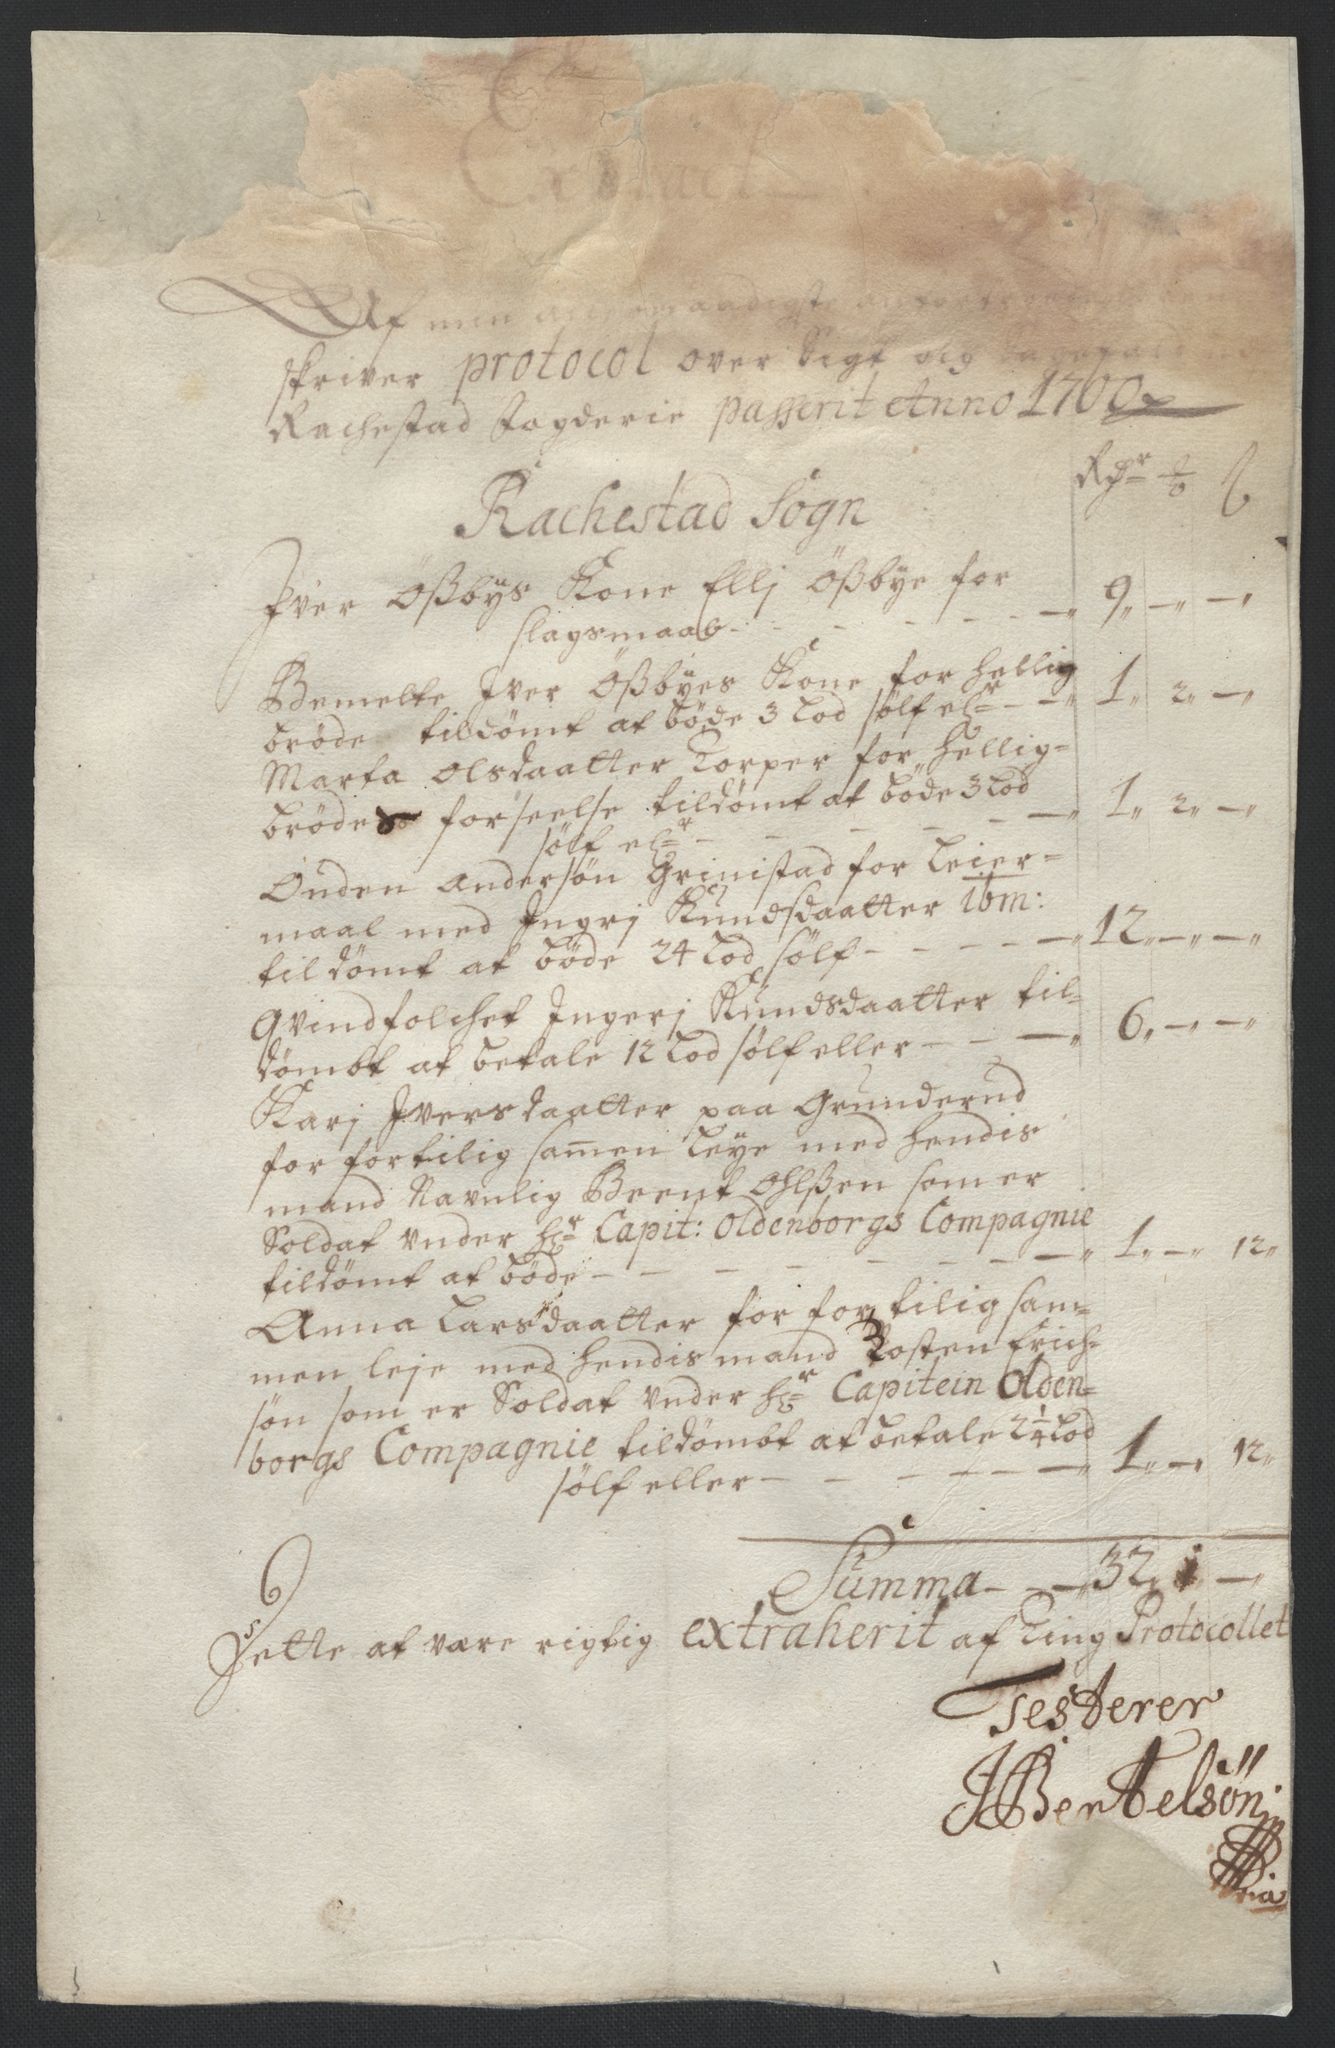 Extract
Af min
skriver protocol over Sigt og
Rachestad fogderie passerit Anno 1700
Rdr
Rachestad Sogn
Iver Ößbys Kone Ellj Ößbye for
slagsmaal - - - - - 9" -" -"
Bemelte Iver Ößbyes Kone for hellig
brøde tildømt at bøde 3 Lod sølf elr - - 1" 2" -"
Marta Olsdaatter Torper for hellig-
brødes forseelse tildømt at bøde 3 Lod
sølf elr - - - - - 1" 2" -"
Ouden Andersøn Grinistad for Leier-
maal med Ingrj Knudsdaatter ibm:
tildømt at bøde 24 Lod sølf - - - - 12" -" -"
Qvindfolchet Ingerj Knudsdaatter til-
dømbt at betale 12 Lod sølf eller - - - 6" -" -"
Karj Iversdaatter paa Grunderud
for fortilig samen Leye med hendis
mand Navnlig Beent Ohlßen som er
Soldat vnder hr Capit: Oldenborgs Compagnie
tildømt at bøde - - - - - - - 1" -" 12"
Anna Larsdaatter for for tilig sam-
men leje med hendis mand Tosten Erich-
søn som er Soldat vnder hr Capitein Olden-
borgs Compagnie tildømbt at betale 2 1/4 Lod
sølf eller - - - - - - 1" -" 12"
Summa - - - 32" 1 -"
Dette at være rigtig extraherit af Ting Protocollet
Testerer
JBertelsøn